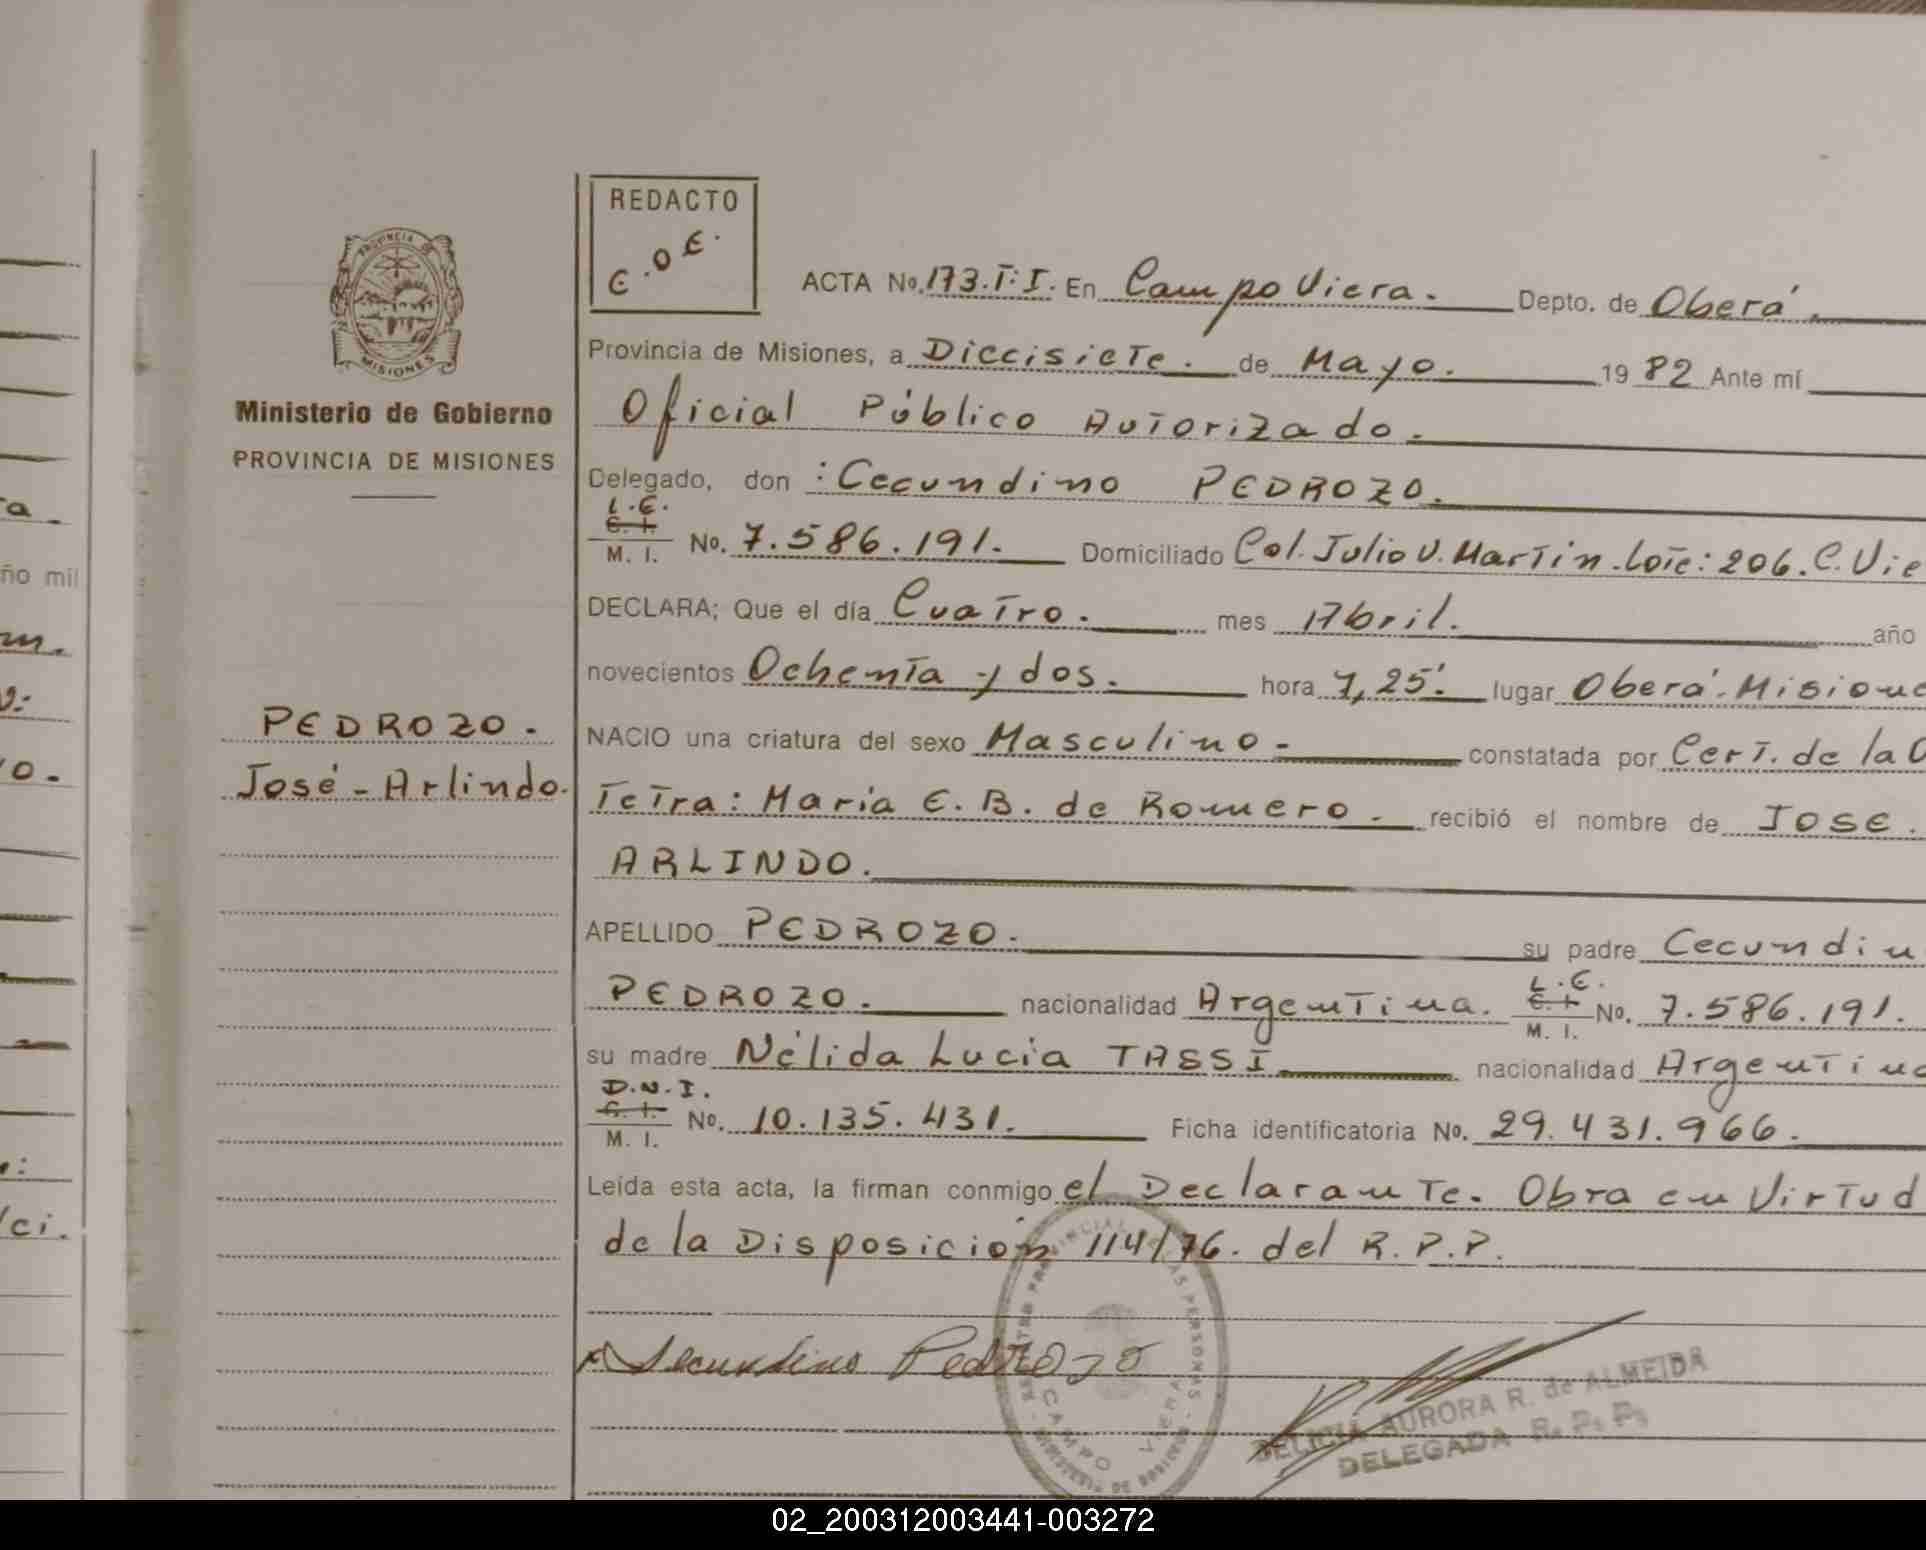 REDACTO
E.O.E.
PROVINCIA DE
MISIONES
Ministerio de Gobierno
PROVINCIA DE MISIONES
ACTA No. 173.T:I. En Campo Viera. Depto. de Oberá.
Provincia de Misiones, a Diecisiete. de Mayo. 1982 Ante mí
Oficial Público Autorizado.
Delegado, don : Cecundino PEDROZO.
L.E.
C. I.
M. I. No. 7.586.191. Domiciliado Col. Julio U. Martin. Lote: 206. C. Vie
DECLARA; Que el día Cuatro. mes Abril. año
novecientos Ochenta y dos. hora 7,25'. lugar Oberá. Misione
NACIO una criatura del sexo Masculino - constatada por Cert. de la O
Tetra: Maria E. B. de Romero. recibió el nombre de JOSE.
ARLINDO.
PEDROZO.
José - Arlindo.
APELLIDO PEDROZO. su padre Cecundin
L.E.
PEDROZO. nacionalidad Argentina. C. I. M. I. No. 7.586.191.
su madre Nélida Lucia TASSI nacionalidad Argentina
D.N.I.
C. I.
M. I. No. 10.135.431. Ficha identificatoria No. 29.431.966.
Leída esta acta, la firman conmigo el Declarante. Obra en Virtud
de la Disposición 114/76. del R.P.P.
Secundino Pedrozo
CAMPO VIERA
DELICIA AURORA R. de ALMEIDA
DELEGADA R. P. P.
ño mil
02_200312003441-003272